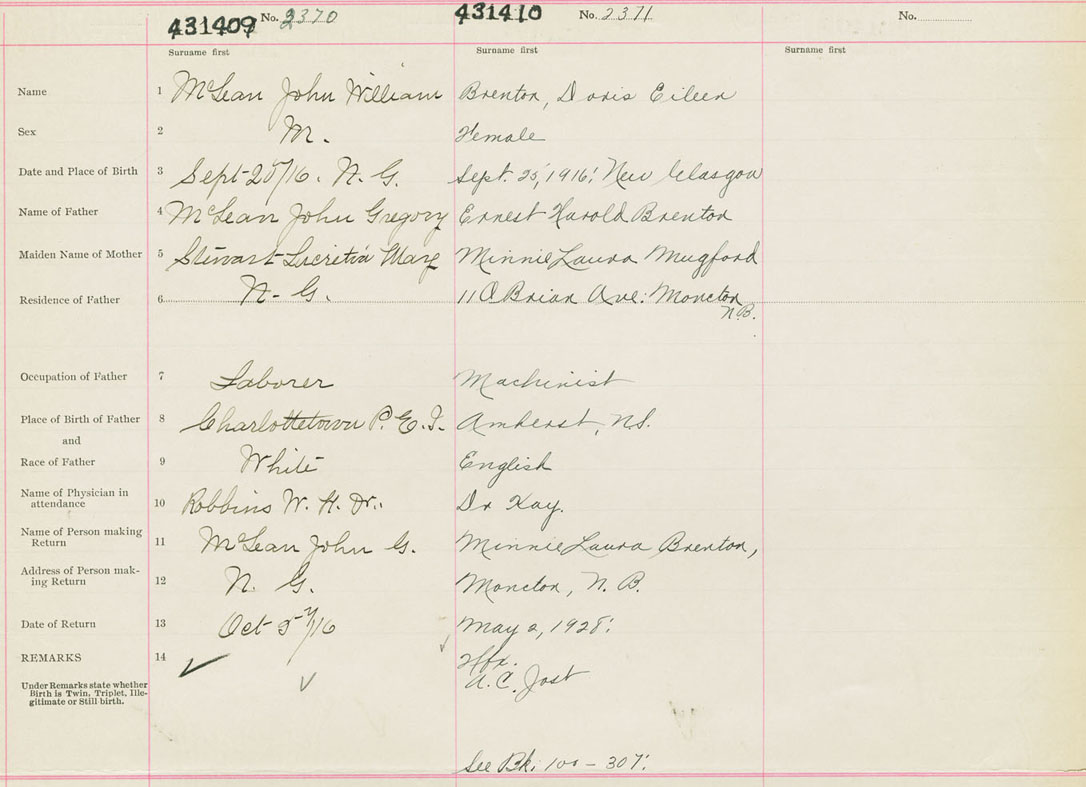 431409 No. 2370 431410 No. 2371 No.
Surname first Surname first Surname first
Name 1 McLean John William Brenton, Doris Eileen
Sex 2 M. Female
Date and Place of Birth 3 Sept 25/16. N. G. Sept. 25, 1916: New Glasgow
Name of Father 4 McLean John Gregory Ernest Harold Brenton
Maiden Name of Mother 5 Stewart Lucretia Mary Minnie Laura Mugford
Residence of Father 6 N. G. 11 O Brian Ave: Moncton
N.B.
Occupation of Father 7 Laborer Machinist
Place of Birth of Father 8 Charlottetown P. E. I. Amherst, N.S.
and
Race of Father 9 White English
Name of Physician in
attendance 10 Robbins W. H. Dr. Dr Kay.
Name of Person making
Return 11 McLean John G. Minnie Laura Brenton,
Address of Person mak-
ing Return 12 N. G. Moncton, N. B.
Date of Return 13 Oct /16 May 2, 1928:
REMARKS 14 Hfx.
A. C. Jost
Under Remarks state whether
Birth is Twin, Triplet, Ille-
gitimate or Still birth.
See Bk. 100 - 307: